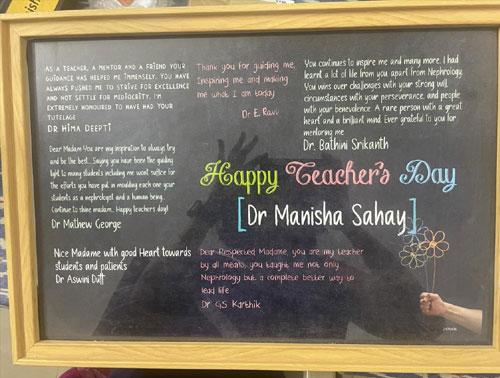 AS A TEACHER, A MENTOR AND A FRIEND YOUR
GUIDANCE HAS HELPED ME IMMENSELY. YOU HAVE
ALWAYS PUSHED ME TO STRIVE FOR EXCELLENCE
AND NOT SETTLE FOR MEDIOCRITY. I'M
EXTREMELY HONOURED TO HAVE HAD YOUR
TUTELAGE
DR HIMA DEEPTI
Thank you for guiding me,
Inspiring me and making
me what I am today
Dr E. Ravi
You continues to inspire me and many more, I had
learnt a lot of life from you apart from Nephrology,
You wins over challenges with your strong will,
circumstances with your perseverance, and people
with your benevolence. A rare person with a great
heart and a brilliant mind. Ever grateful to you for
mentoring me
Dr. Bathini Srikanth
Dear Madam You are my inspiration to always try
and be the best...Saying you have been the guiding
light to many students including me wont suffice for
the efforts you have put in moulding each one your
students as a nephrologist and a human being..
Continue to shine madam.. Happy teachers day!
Dr Mathew George
Happy Teacher's Day
[Dr Manisha Sahay]
Nice Madame with good Heart towards
students and patients
Dr Aswini Dutt
Dear Respected Madame, you are my teacher
by all means, you taught me not only
Nephrology but a complete better way to
lead life
Dr GS Karthik